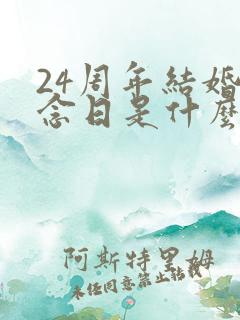 24周年結婚
念日是什麼
阿斯特里姆
未經同意禁止轉載